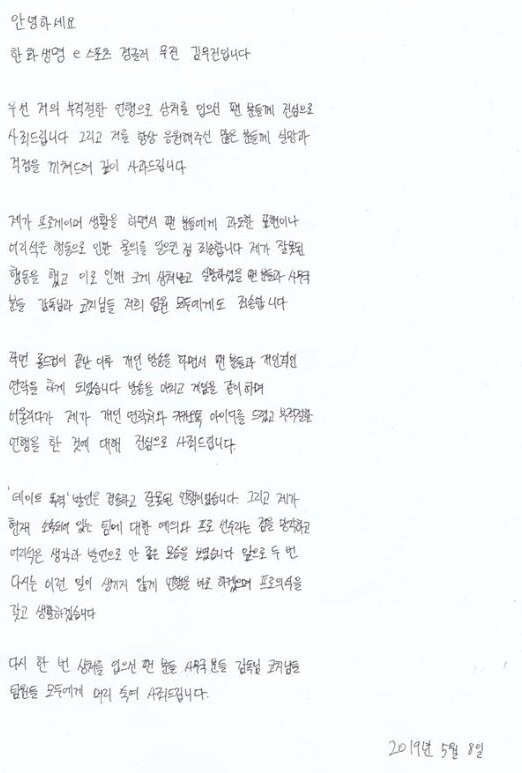 안녕하세요
한화생명 e스포츠 정글러 무진 김무진입니다
우선 저의 부적절한 언행으로 상처를 입으신 팬 분들께 진심으로
사죄드립니다 그리고 저를 항상 응원해주신 많은 분들께 실망과
걱정을 끼쳐드려 깊이 사과드립니다
제가 프로게이머 생활을 하면서 팬 분들에게 과도한 표현이나
어리석은 행동으로 인한 물의를 일으킨 점 죄송합니다 제가 잘못된
행동을 했고 이로 인해 크게 상처받고 실망하셨을 팬 분들과 사무국
분들 감독님과 코치님들 저희 팀원 모두에게도 죄송합니다
작년 롤드컵이 끝난 이후 개인 방송을 하면서 팬 분들과 개인적인
연락을 하게 되었습니다 방송을 마치고 게임을 같이 하며
어울리다가 제가 개인 연락처와 카카오톡 아이디를 드렸고 부적절한
언행을 한 것에 대해 진심으로 사죄드립니다.
'데이트 폭력' 발언은 경솔하고 잘못된 언행이었습니다. 그리고 제가
현재 소속되어 있는 팀에 대한 예의와 프로 선수라는 점을 망각하고
어리석은 생각과 발언으로 안 좋은 모습을 보였습니다 앞으로 두 번
다시는 이런 일이 생기지 않게 언행을 바로 하겠으며 프로의식을
갖고 생활하겠습니다
다시 한 번 상처를 입으신 팬 분들 사무국 분들 감독님 코치님들
팀원들 모두에게 머리 숙여 사죄드립니다.
2019년 5월 8일